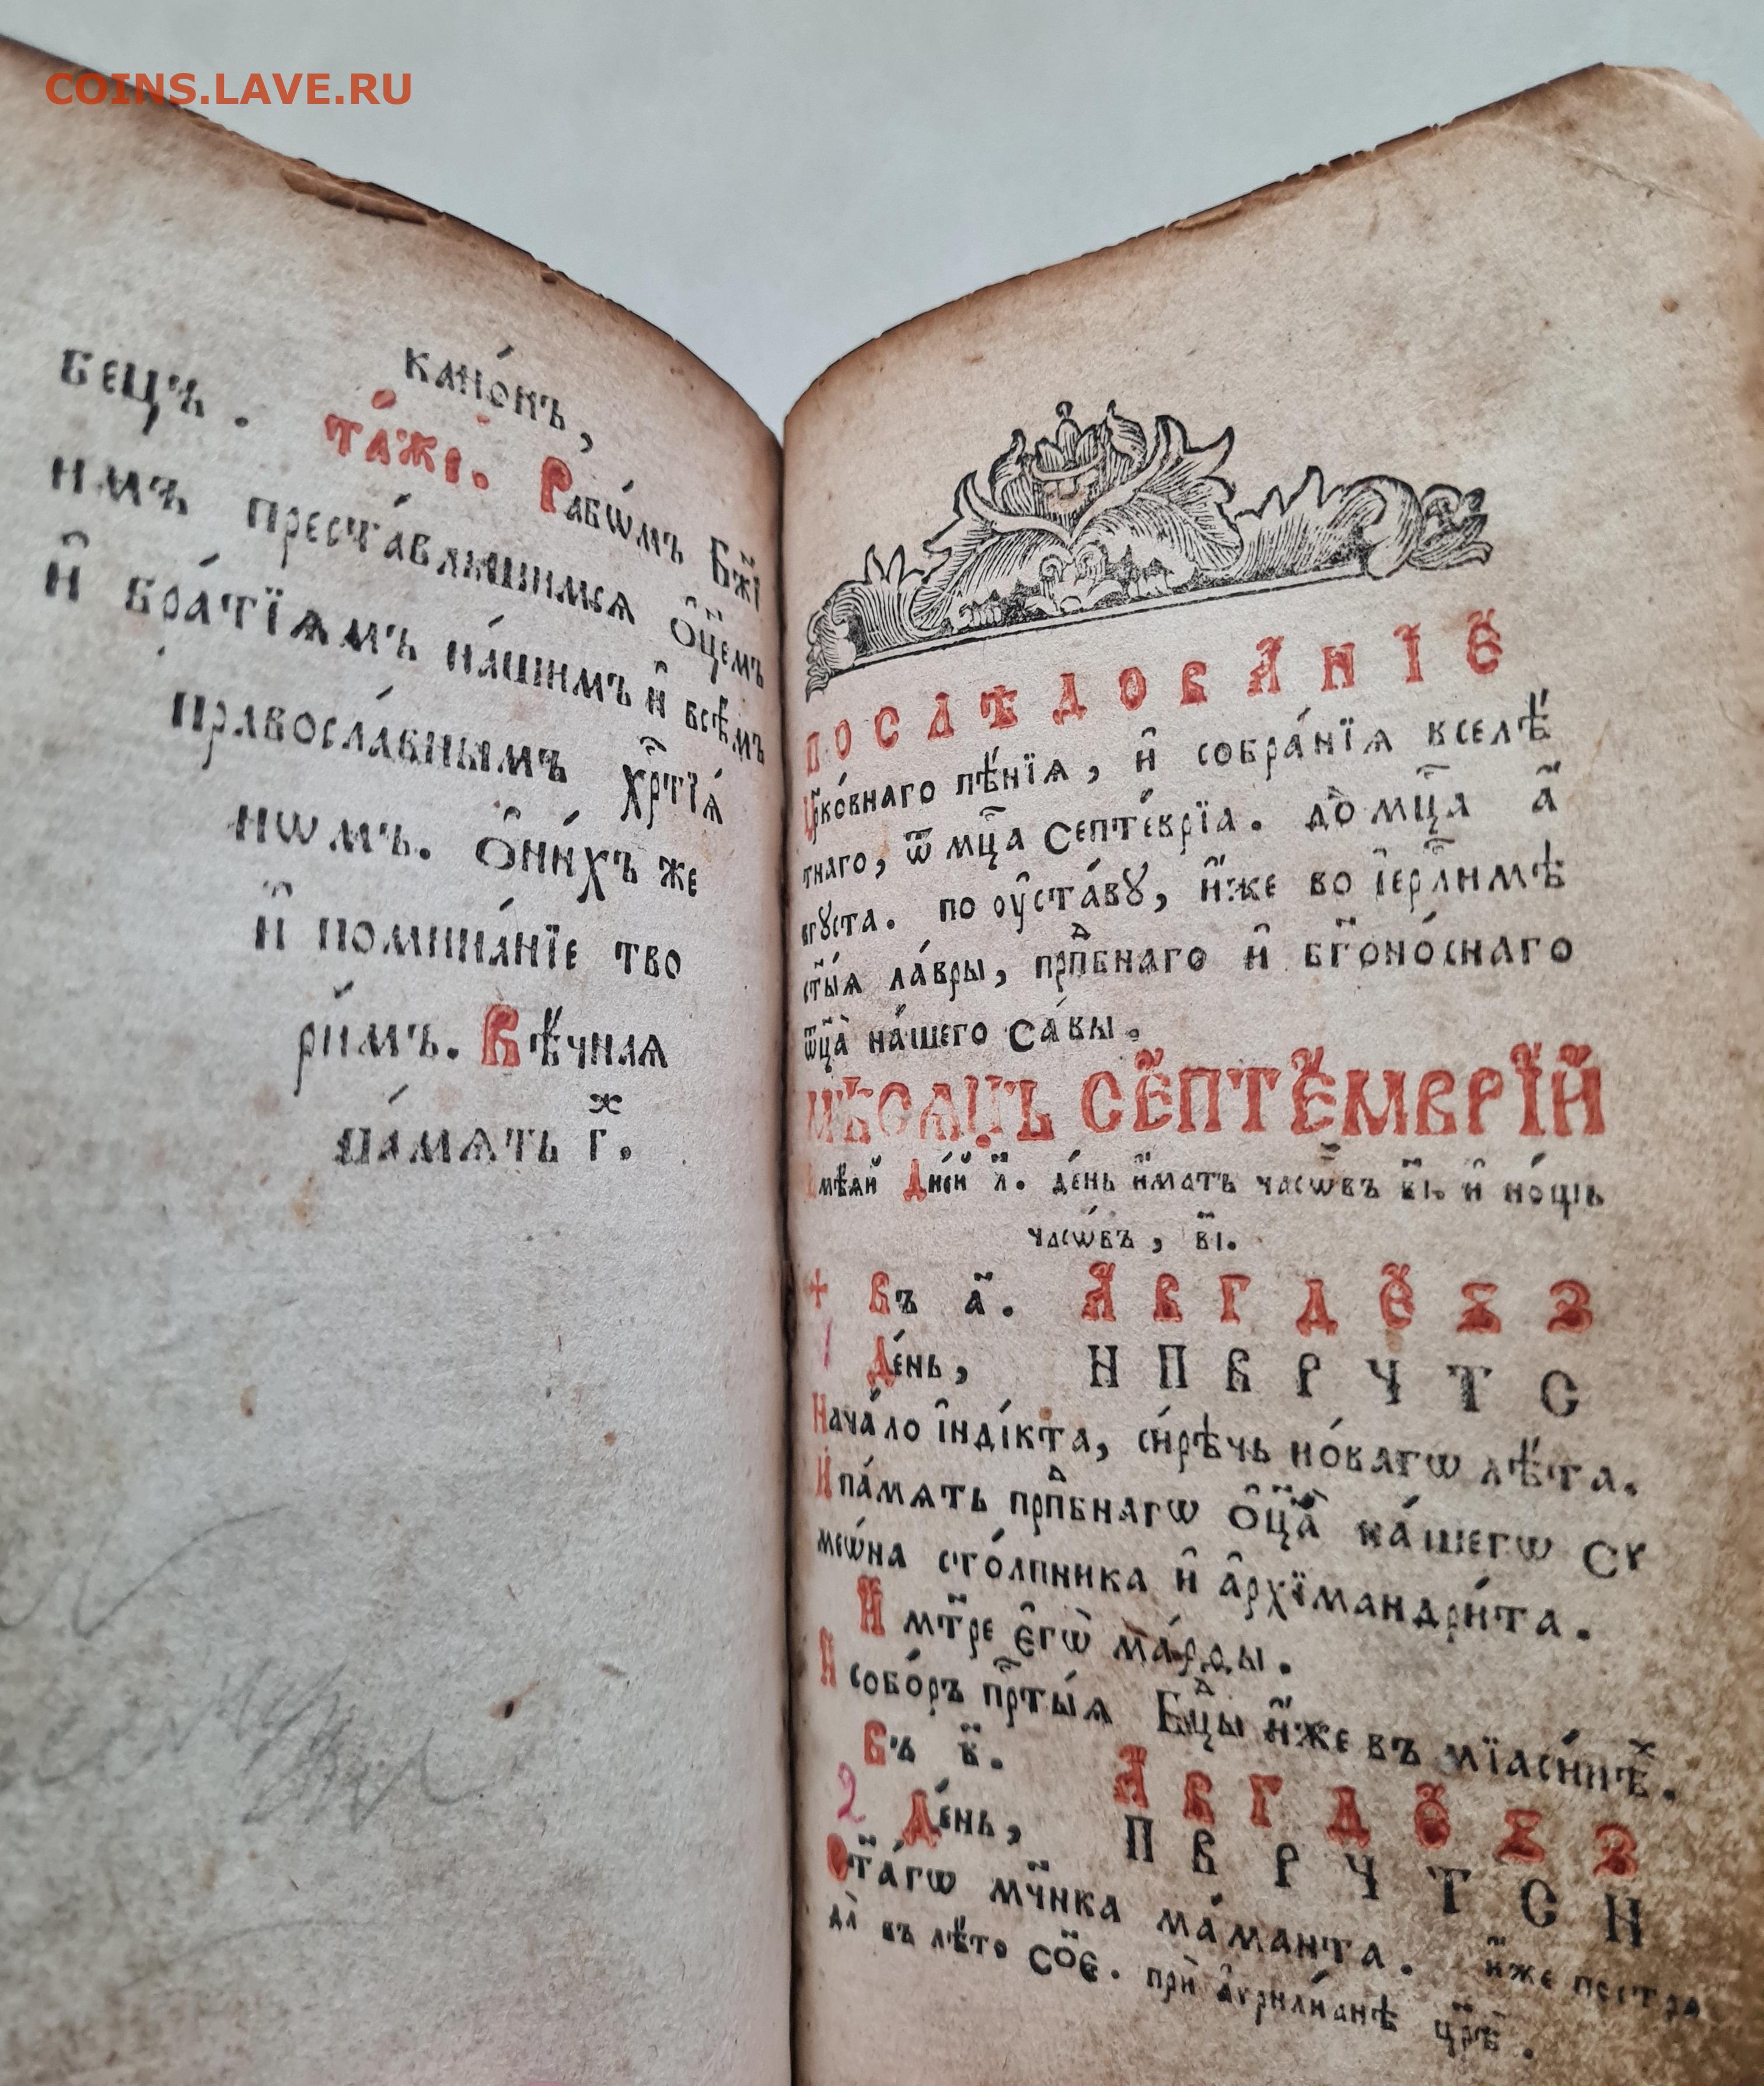 COINS.LAVE.RU
канѡ́нъ,
бецъ. та́же. Рабѡ́мъ бж҃і
имъ преста́вльшимсѧ ѻ҆ц҃емъ
и҆ бра́тїѧмъ на́шимъ и҆ всѣ̑мъ
правосла́внымъ хрⷭ҇тїѧ́
нѡмъ. ѻ҆ни́хъ же
и҆ помина́нїе тво
ри́мъ. Вѣ́чнаѧ
па́мѧть г҃.
ПОСЛѢДОВА́НІЕ
Цр҃ко́внаго пѣ́нїѧ, и҆ собра́нїѧ вселѣ́
тнаго, ѿ мц҃а Септе́врїа. до мц҃а а҆́
вгꙋста. по оу҆ста́вꙋ, и҆́же во і҆ер҃ли́мѣ
ст҃ы́ѧ ла́вры, прпⷣбнаго и҆ бг҃оно́снаго
ѻц҃а̀ на́шего Са́вы.
МѢ́СѦЦЪ СЕПТЕ́МВРІЙ
и҆мѣѧй Дні́й л҃. де́нь и҆́мать часѡ́въ в҃і. и҆ но́щь
часѡ́въ, в҃і.
+ Въ а҃. А В Г Д Е Ѕ З
1 Де́нь, Н П В Р Ч Т С
Нача́ло і҆нді́кта, си́рѣчь но́вагѡ лѣ́та.
И па́мѧть прпⷣбнагѡ ѻ҆ц҃а̀ на́шегѡ Сѵ
меѡ́на сто́лпника и҆ а҆рхїмандри́та.
И мт҃ре є҆гѡ̀ ма́рѳы.
И собо́ръ прⷭ҇ты́ѧ Бцⷣы и҆́же въ мїаси́нѣⷯ.
Въ в҃. А В Г Д Е Ѕ З
2 Де́нь, П В Р Ч Т С Н
Ст҃а́гѡ мч҃нка ма́манта. и҆́же постра
да̀ въ лѣ́то со҃є. прѝ а҆ѵрилїа́нѣ цр҃ѣ̀.